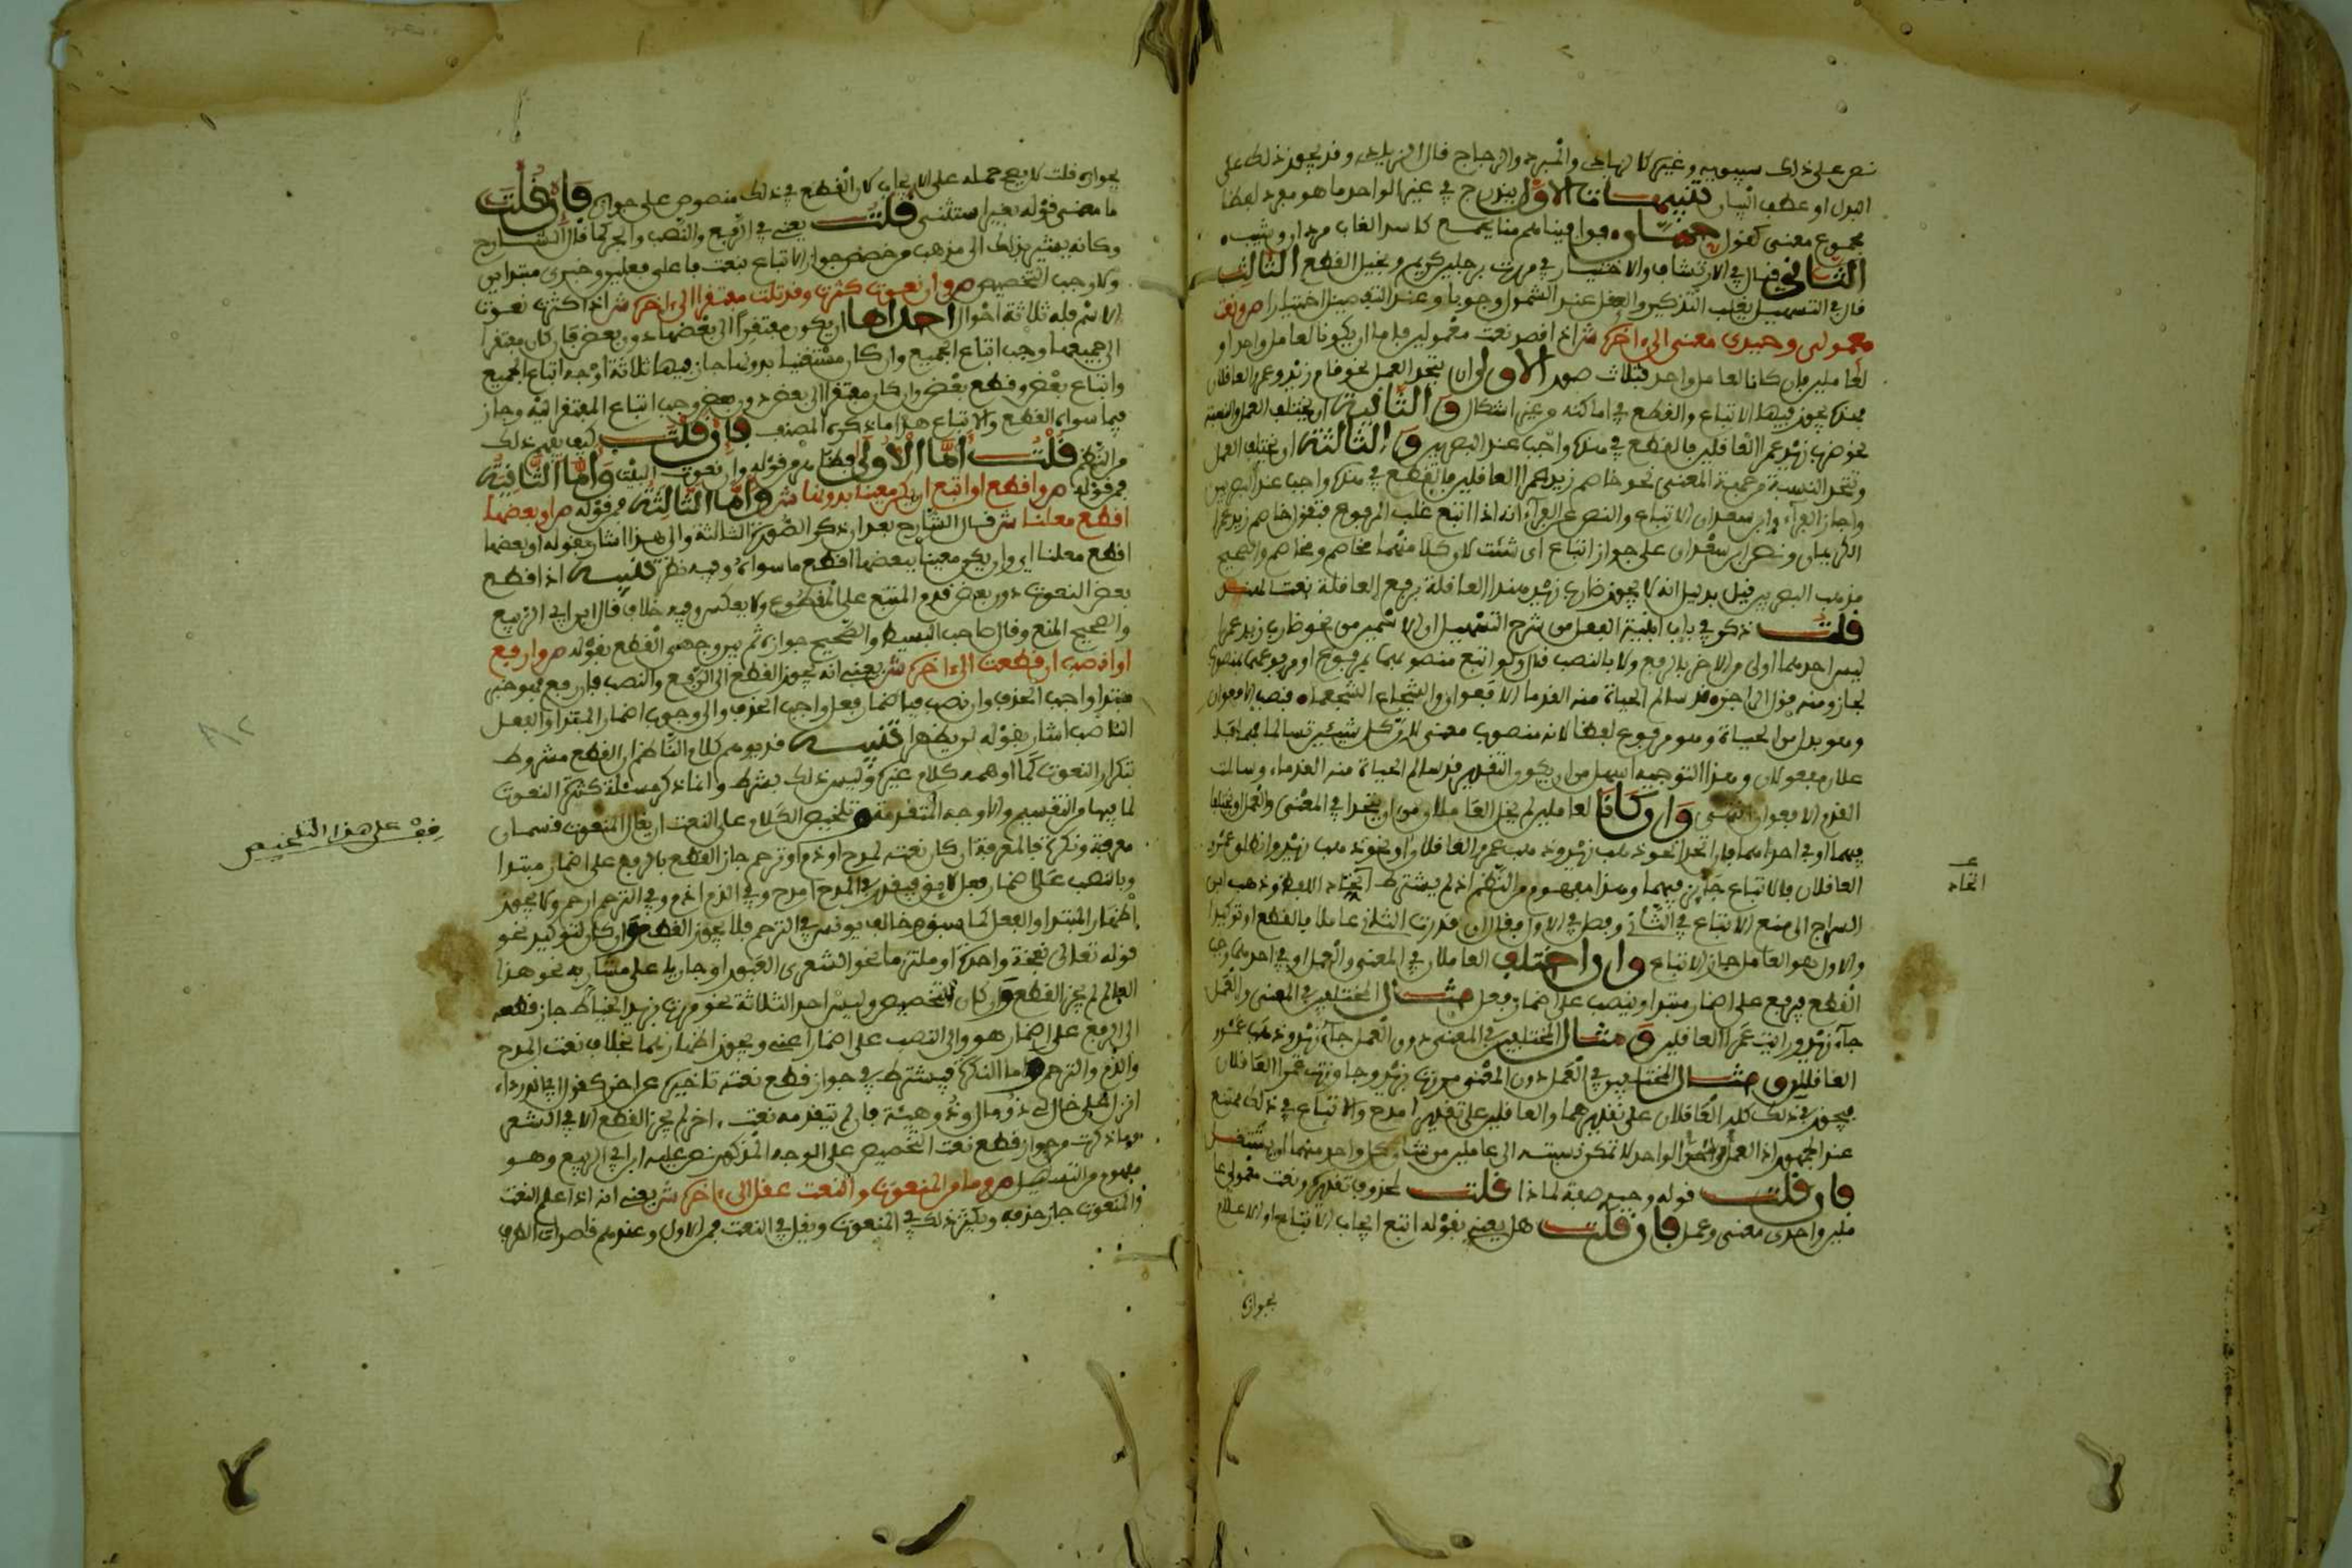 نص على ذلك سيبويه وغيره كالمهابذى والمبرد والزجاج قال الزبيدى وقد يجوز ذلك على
البدل او عطف البيان تنبيهات الاول يندرج في غير الواحد ما هو مفرد لفظا
مجموع معنى كقول حسان فوافيناهم منا بجمع كاسد الغاب مردان وشيب
الثاني قال في الارتشاف والاختيار في مررت برجلين كريم وبخيل القطع الثالث
قال في التسهيل يغلب التذكير والعقل عند الشمول وجوبا وعند التفصيل اختيارا ص ونعت
معمولى وحيدى معنى الى ءاخره ش اذا قصد نعت معمولين فاما ان يكونا لعامل واحد او
لعاملين فان كانا لعامل واحد فثلاث صور الاولى ان يتحد العمل نحو قام زيد وعمرو العاقلان
فهذه يجوز فيها الاتباع والقطع في اماكنه من غير اشكال والثانية ان يختلف العمل والنسبة
نحو ضرب زيد عمرا العاقلين فالقطع في هذه واجب عند البصريين والثالثة ان يختلف العمل
وتتحد النسبة من جهة المعنى نحو خاصم زيد عمرا العاقلين فالقطع في هذه واجب عند البصريين
واجاز الفراء وابن سعدان الاتباع والنص عن الفراء انه اذا اتبع غلب المرفوع فتقول خاصم زيد عمرا
الكريمان ونص ابن سعدان على جواز اتباع اى شئت لان كلا منهما مخاصم ومخاصم والصحيح
مذهب البصريين قيل بدليل انه لا يجوز ضارب زيد هندا العاقلة برفع العاقلة نعتا لهند
قلت ذكر في باب ابنية الفعل من شرح التسهيل ان الاسمين من نحو ضارب زيد عمرا
ليس احدهما اولى من الاخر بالرفع ولا بالنصب قال ولو اتبع منصوبهما بمرفوع او مرفوعهما بمنصوب
لجاز ومنه قول الراجز قد سالم الحيات منه القدما الافعوان والشجاع الشجعما فنصب الافعوان
وهو بدل من الحيات وهو مرفوع لفظا لانه منصوب معنى لان كل شيئين تسالما فهما فاعلان
علان مفعولان وهذا التوجيه اسهل من ان يكون التقدير قد سالم الحيات منه القدما وسالمت
القدم الافعوان انتهى وان كانا لعاملين لم يخل العاملان من ان يتحدا في المعنى والعمل او يختلفا
فيهما او في احدهما فان اتحدا نحو ذهب زيد وذهب عمرو العاقلان او نحو ذهب زيد وانطلق عمرو
العاقلان فالاتباع جائز فيهما وهذا مفهوم من النظم اذ لم يشترط اتحاد اللفظ وذهب ابن
السراج الى منع الاتباع في الثانى وفصل في الاول فقال ان قدرت الثانى عاملا فالقطع او توكيدا
والاول هو العامل جاز الاتباع وان اختلف العاملان في المعنى والعمل او في احدهما وجب
القطع فيرفع على اضمار مبتدا وينصب على اضمار فعل مثال المختلفين في المعنى والعمل
جاء زيد ورايت عمرا العاقلين ومثال المختلفين في المعنى دون العمل جاء زيد وذهب عمرو
العاقلان ومثال المختلفين في العمل دون المعنى مررت بزيد وجاوزت عمرا العاقلان
فيجوز في ذلك كله العاقلان على تقدير هما والعاقلين على تقدير امدح والاتباع في ذلك ممتنع
عند الجمهور اذ العمل الواحد لا تمكن نسبته الى عاملين من شان كل واحد منهما ان يستقل
فان قلت قوله وحيدى صفة لماذا قلت لمحذوف تقديره ونعت معمولى عا
ملين واحدى معنى وعمل فان قلت هل يعنى بقوله اتبع ايجاب الاتباع او الاعلام
بجوازه
اتحاد
بجوازه قلت لا يصح حمله على الايجاب لان القطع في ذلك منصوص على جوازه فان قلت
ما معنى قوله بغير استثنى قلت يعنى في الرفع والنصب والجر كما قال الشارح
وكانه يشير بذلك الى مذهب من خصص جواز الاتباع بنعت فاعلى فعلين وخبرى مبتداين
ولا وجب التخصيص ص وان نعوت كثرت وقد تلت مفتقرا الى ءاخره ش اذا كثرت نعوت
الاسم فله ثلاثة احوال احداها ان يكون مفتقرا الى بعضها دون بعض فان كان مفتقرا
الى جميعها وجب اتباع الجميع وان كان مستغنيا بدونها جاز فيها ثلاثة اوجه اتباع الجميع
واتباع بعض وقطع بعض وان كان مفتقرا الى بعض دون بعض وجب اتباع المفتقر اليه وجاز
فيما سواه القطع والاتباع هذا ما ذكره المصنف فان قلت كيف يفهم ذلك
من النظم قلت اما الاولى فظاهر من قوله وان نعوت البيت واما الثانية
فمن قوله ص واقطع او اتبع ان يكن معينا بدونها ش واما الثالثة فمن قوله ص او بعضها
اقطع معلنا ش قال الشارح بعد ان ذكر الصورة الثالثة والى هذا اشار بقوله او بعضها
اقطع معلنا اى وان يكن معينا ببعضها اقطع ما سواه وفيه نظر تنبيه اذا قطع
بعض النعوت دون بعض قدم المتبع على المقطوع ولا يعكس وفيه خلاف قال ابن ابى الربيع
والصحيح المنع وقال صاحب البسيط والصحيح جوازه ثم بين وجهى القطع بقوله ص وارفع
او انصب ان قطعت الى ءاخره ش يعنى انه يجوز القطع الى الرفع والنصب فان رفع فهو خبر
مبتدا واجب الحذف وان نصب فباضمار فعل واجب الحذف والى وجوب اضمار المبتدا والفعل
الناصب اشار بقوله لن يظهرا تنبيه قد يوهم كلام الناظم ان القطع مشروط
بتكرار النعوت كما اوهمه كلام غيره وليس ذلك بشرط وانما ذكر مسئلة كثرة النعوت
لما فيها من التقسيم والاوجه المتقدمة وتلخيص الكلام على النعت ان يقال المنعوت قسمان
معرفة ونكرة فالمعرفة ان كان نعته لمدح او ذم او ترحم جاز القطع بالرفع على اضمار مبتدا
وبالنصب على اضمار فعل لائق فيقدر في المدح امدح وفي الذم اذم وفي الترحم ارحم ولا يجوز
اظهار المبتدا والفعل كما سبق خالف يونس في الترحم فلا يجوز القطع وان كان لتوكيد نحو
قوله تعالى نفخة واحدة او ملتزما نحو الشعرى العبور او جاريا على مشار به نحو هذا
العالم لم يجز القطع وان كان لتخصيص وليس احد الثلاثة نحو مررت بزيد الخياط جاز قطعه
الى الرفع على اضمار هو والى النصب على اضمار اعنى ويجوز اظهارهما بخلاف نعت المدح
والذم والترحم واما النكرة فيشترط في جواز قطع نعته تاخيره عن اخر كقول ابى الدرداء
نزلنا على خال لنا ذو مال وذو هيئة فان لم يتقدمه نعت اخر لم يجز القطع الا في الشعر
وما ذكرت من جواز قطع نعت التخصيص على الوجه المذكور نص عليه ابن ابى الربيع وهو
مفهوم من التسهيل ص وما من المنعوت والنعت عقل الى ءاخره ش يعنى انه اذا علم النعت
والمنعوت جاز حذفه ويكثر ذلك في المنعوت ويقل في النعت فمن الاول وعندهم قاصرات الطرف
قف على هذا التلخيص